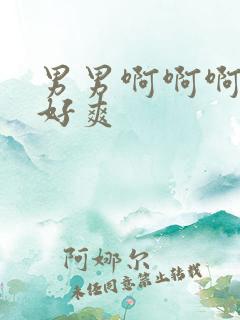 男男啊啊啊
好爽
阿娜尔
未经同意禁止转载